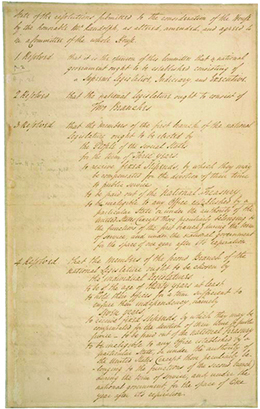 State of the resolutions submitted to the consideration of the House
by the honorable Mr. Randolph, as altered, amended, and agreed to
in a Committee of the whole House.
1 Resolved that it is the opinion of this Committee that a national
government ought to be established consisting of
a Supreme Legislative, Judiciary, and Executive.
2 Resolved that the national Legislature ought to consist of
Two Branches.
3 Resolved that the members of the first branch of the national
Legislature ought to be elected by
the People of the several States
for the term of Three years.
to receive fixed stipends, by which they may
be compensated for the devotion of their time
to public service
to be paid out of the National Treasury.
to be ineligible to any Office established by a
particular State or under the authority of the
United States (except those peculiarly belonging to
the functions of the first branch) during the term
of service, and under the national government
for the space of one year after its expiration.
4 Resolved that the members of the second Branch of the
national Legislature ought to be chosen by
the individual Legislatures.
to be of the age of thirty years at least.
to hold their offices for a term sufficient to
ensure their independency, namely
seven years.
to receive fixed stipends, by which they may be
compensated for the devotion of their time to public
service to be paid out of the National Treasury
to be ineligible to any Office established by a
particular State, or under the authority of
the United States (except those peculiarly be-
longing to the functions of the second branch)
during the term of service, and under the
national government, for the space of One
year after its expiration.